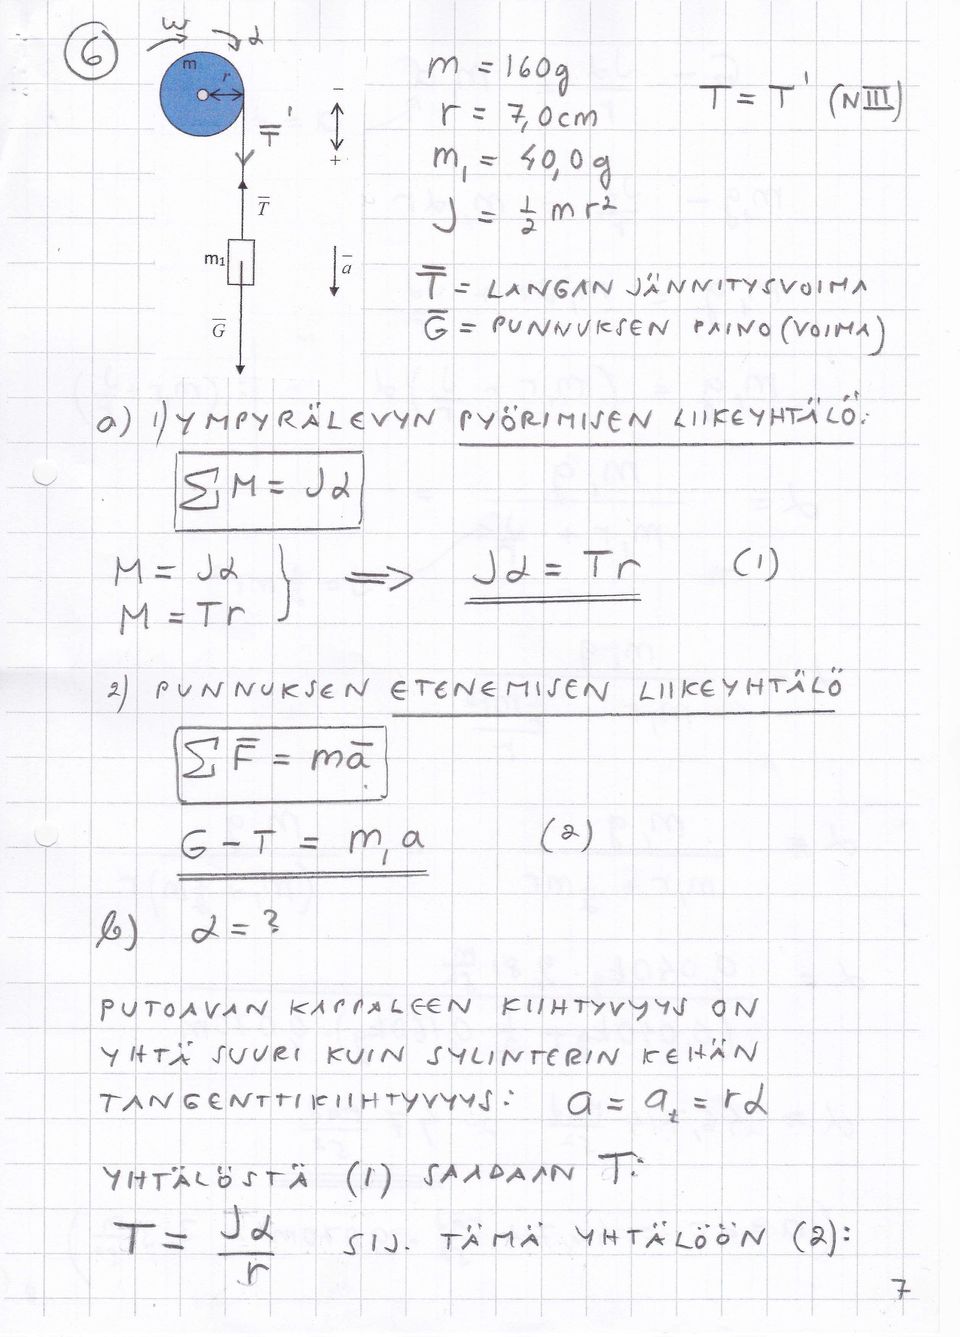 6
ω α
m r
T̄'
−
+
T̄
m₁
ā
Ḡ
m = 160g
r = 7,0cm
m₁ = 40,0g
J = ½ mr²
T = T' (NIII)
T̄ = LANGAN JÄNNITYSVOIMA
Ḡ = PUNNUKSEN PAINO(VOIMA)
a) 1) YMPYRÄLEVYN PYÖRIMISEN LIIKEYHTÄLÖ:
∑M = Jα
M = Jα
M = Tr
⇒ Jα = Tr (1)
2) PUNNUKSEN ETENEMISEN LIIKEYHTÄLÖ
∑F̄ = mā
G − T = m₁a (2)
b) α = ?
PUTOAVAN KAPPALEEN KIIHTYVYYS ON
YHTÄ SUURI KUIN SYLINTERIN KEHÄN
TANGENTTIKIIHTYVYYS: a = aₜ = rα
YHTÄLÖSTÄ (1) SAADAAN T:
T = Jα/r SIJ. TÄMÄ YHTÄLÖÖN (2):
7